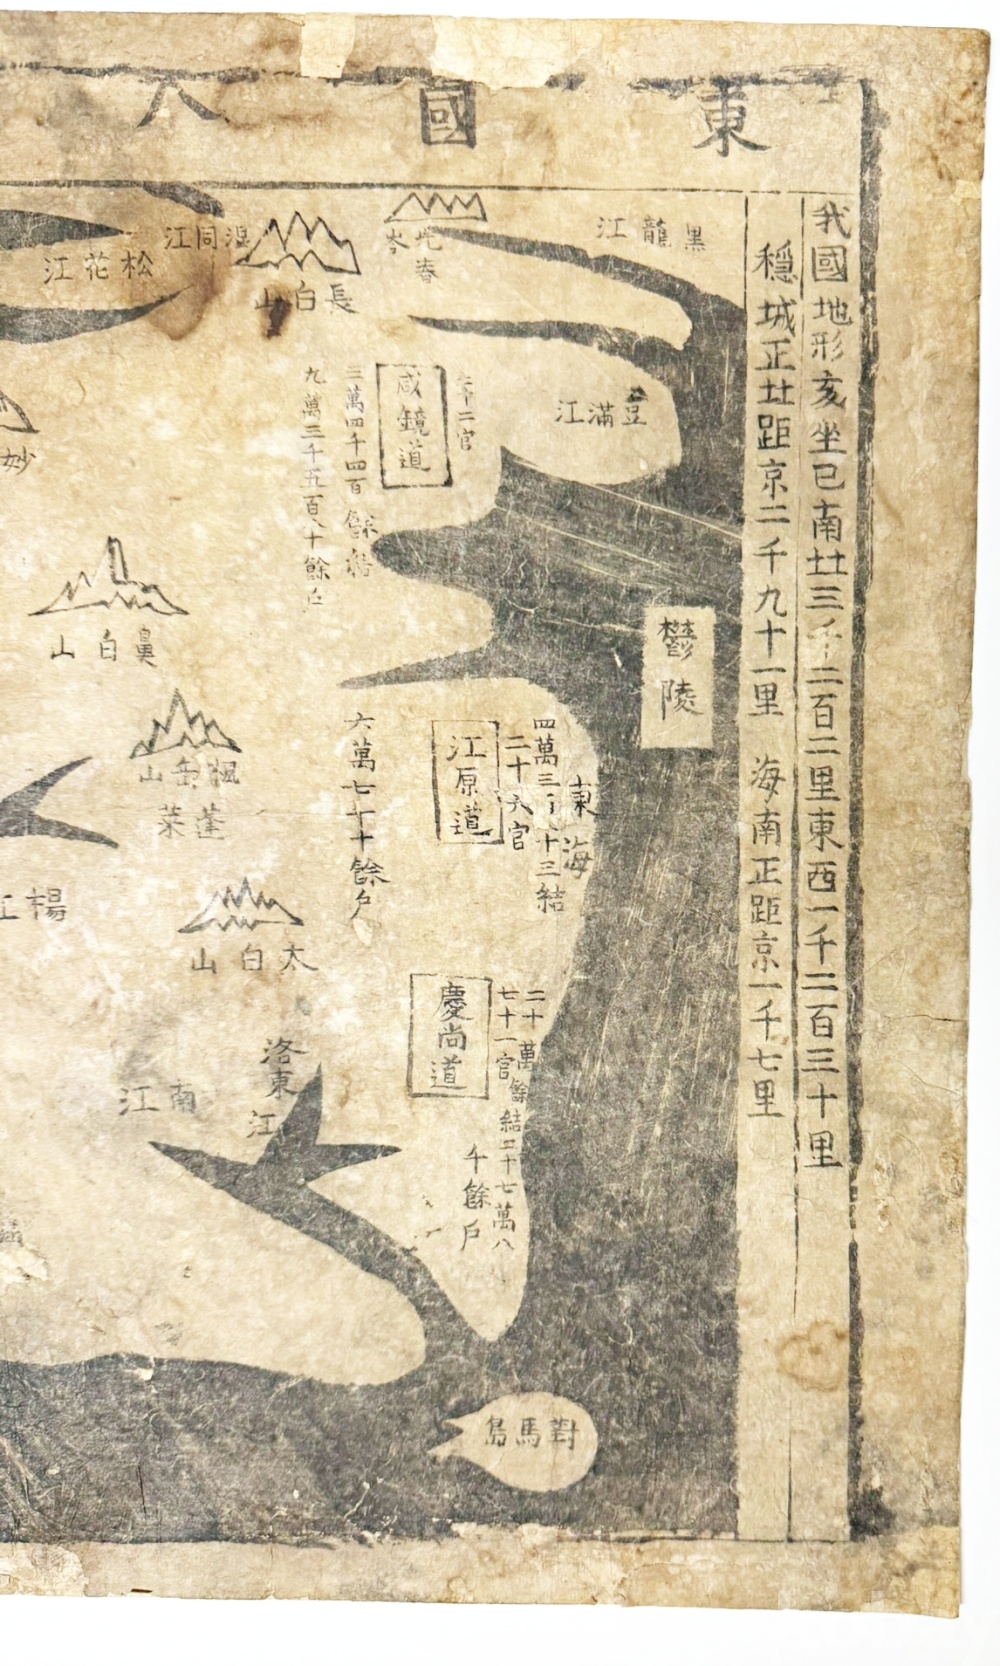 東國
我國地形亥坐巳南北三千二百二里東西一千二百三十里
穩城正北距京二千九十一里　海南正距京一千七里
黑龍江
長白山
混同江
松花江
豆滿江
咸鏡道
二官
三萬四千四百餘結
九萬三千五百八十餘戶
妙
鼻白山
鬱陵
江原道
二十六官
四萬三千八十三結
六萬七千十餘戶
東海
楓岳山
蓬萊
楊江
太白山
慶尚道
七十一官
二十萬餘結三十七萬八
千餘戶
洛東江
南江
對馬島